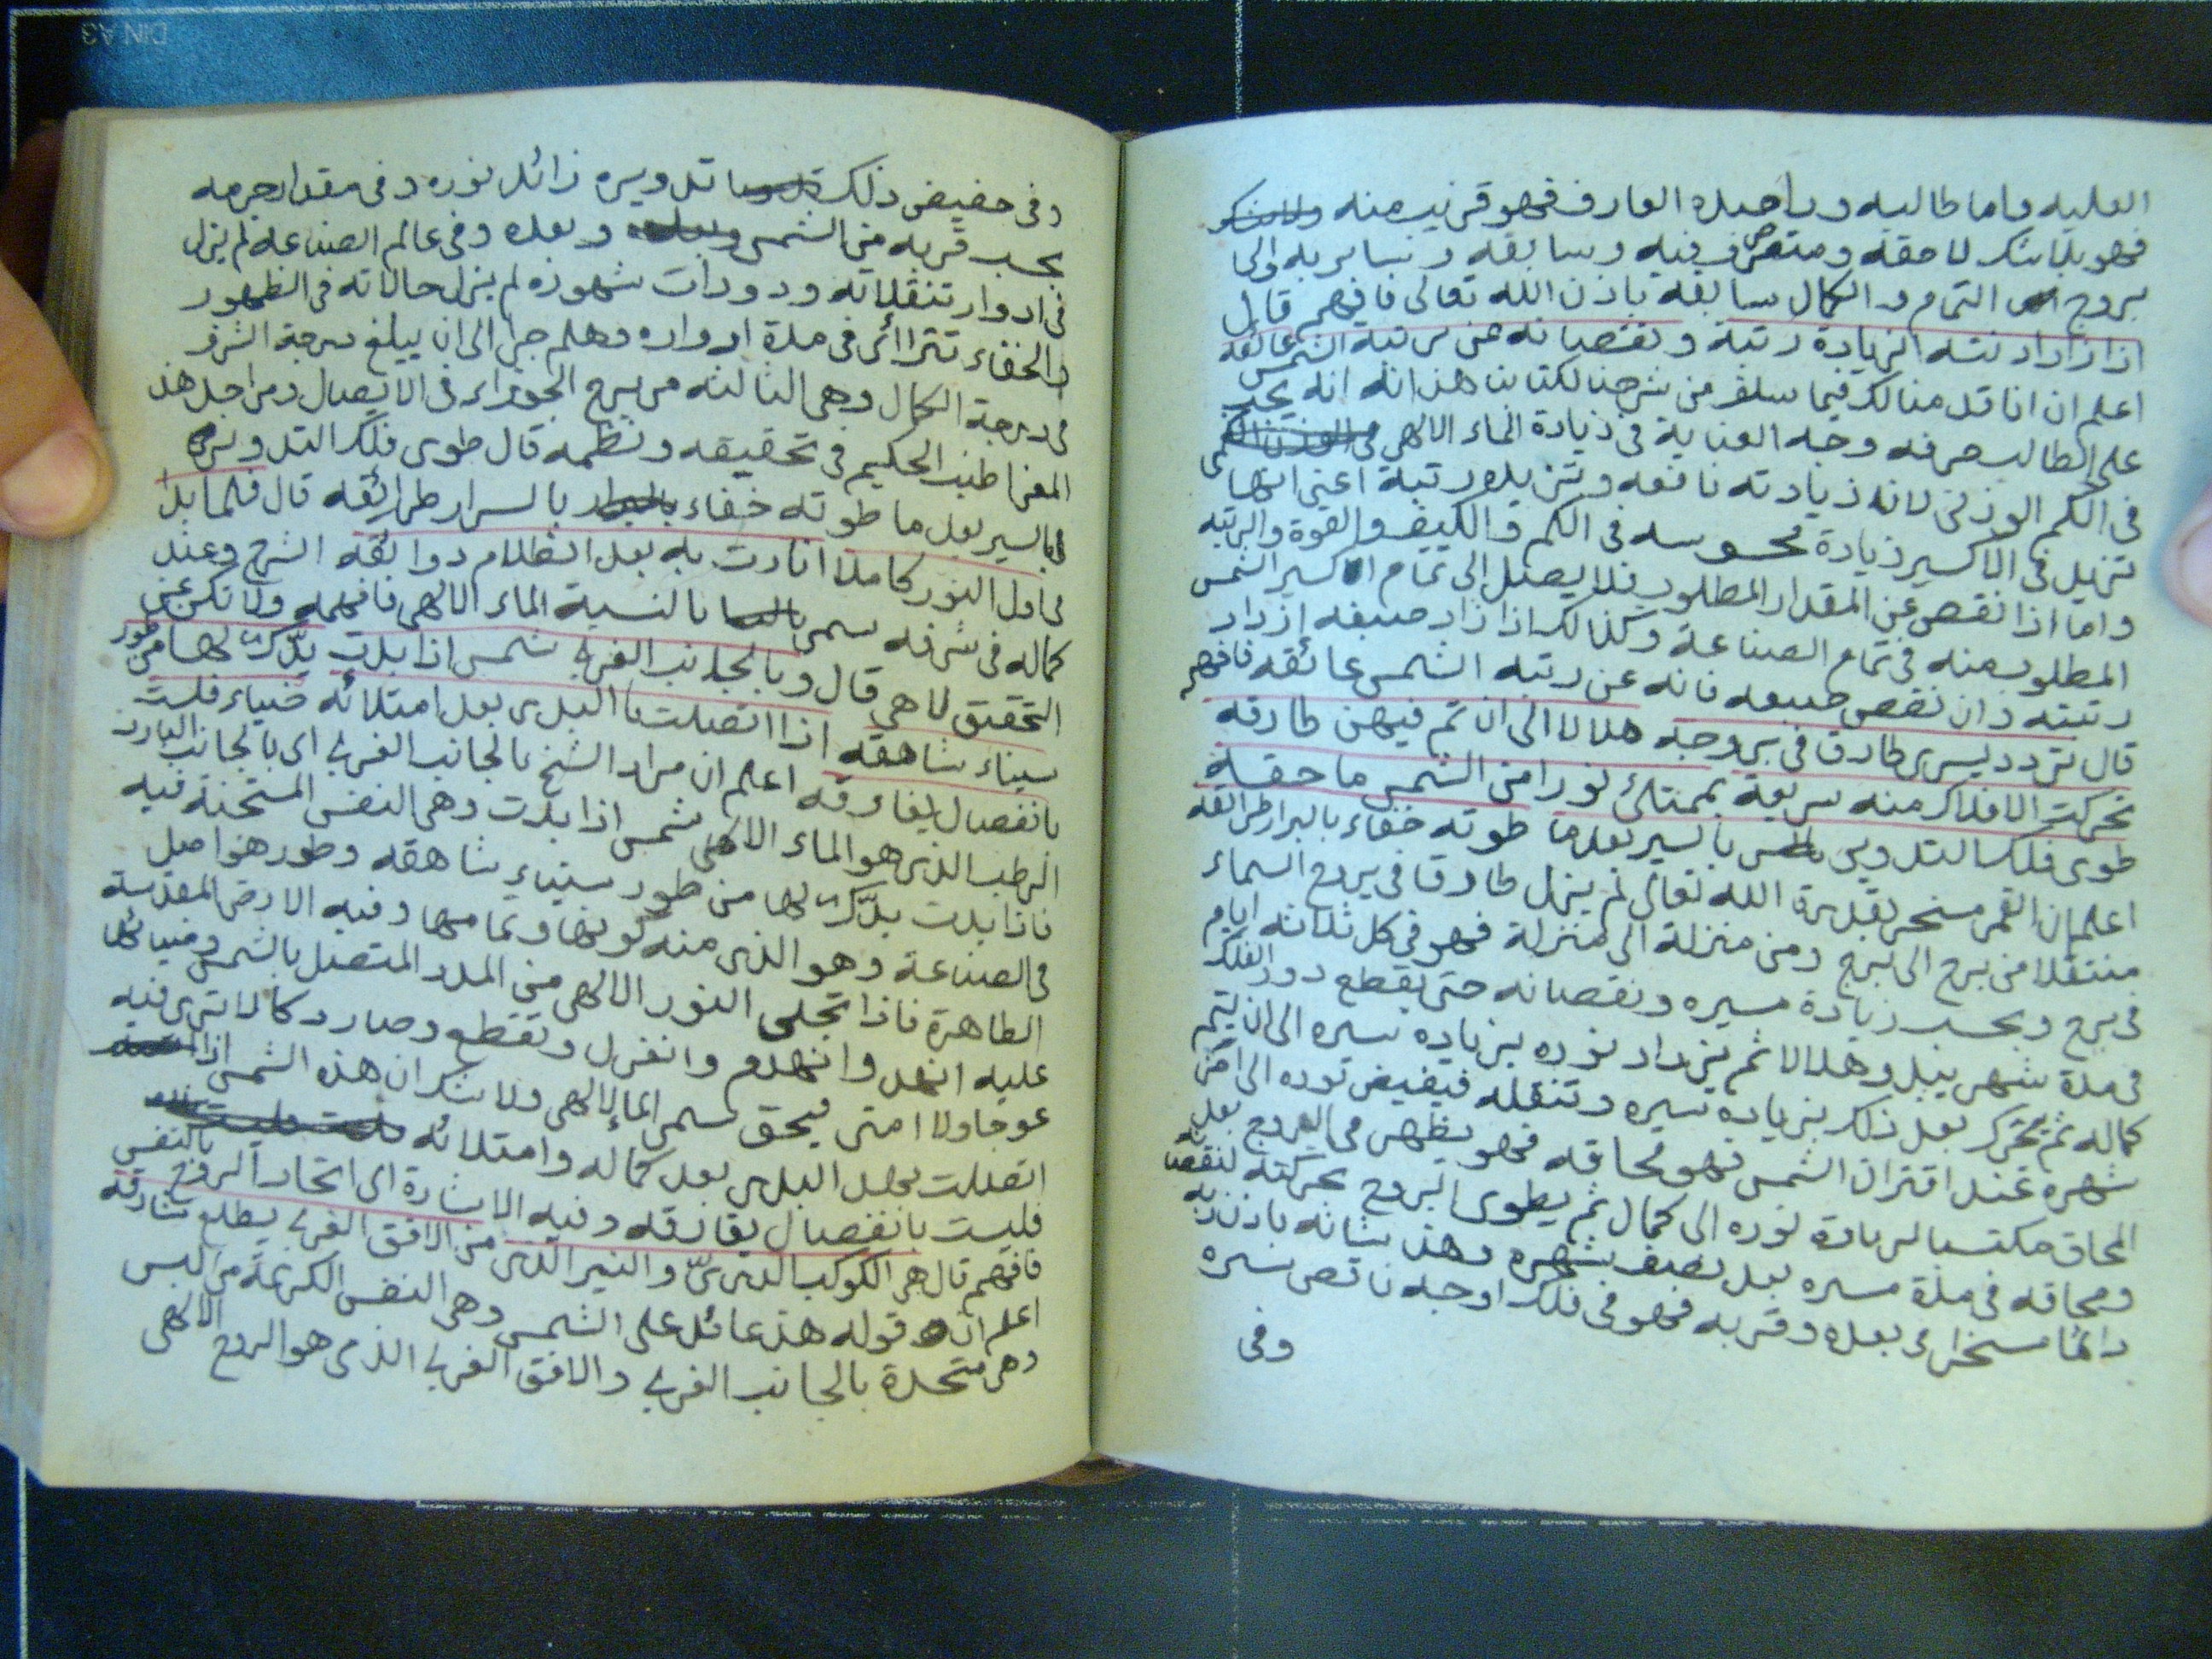 العليه واما طالبه وراصده العارف فهو قريب منه
فهو بلا شك لاحقه ومتصرف فيه وسابقه وسايربه والى
بروج التمام والكمال سابقه باذن الله تعالى فافهم قال
اذا زاد ادنته الزيادة رتبة ونقصانه عن رتبة الشمس عائقه
اعلم ان اناقدمنا لك فيما سلف من شرحنا لكتابنا هذا انه يجب
على الطالب معرفه وجه العناية فى زيادة الماء الالهى
فى الكم الوزنى لانه زيادته نافعه وتزيده رتبة اعنى انها
تزيد فى الاكسير زيادة محسوسه فى الكم والكيف والقوة والرتبه
واما اذا نقص عن المقدار المطلوب فلا يصل الى تمام اكسير الشمس
المطلوب منه فى تمام الصناعة وكذالك اذا زاد صبغه ازداد
رتبته وان نقص صبغه فانه عن رتبه الشمس عائقه فافهم
قال تردد يسرى طارق فى بروجه هلالا الى ان تم فيهن طارقه
تحركت الافلاك منه سريعة بممتلئ نورا من الشمس ماحقه
طوى فلك التدوير بالسير بعدما طوته خفاء بالسرار طرائقه
اعلم ان القمر مسخر بقدرة الله تعالى لم يزل طارقا فى بروج السماء
منتقلا من برج الى برج ومن منزلة الى منزلة فهو فى كل ثلاثه ايام
فى برج وبحسب زيادة مسيره ونقصانه حتى يقطع دور الفلك
فى مدة شهر يبدو هلالا ثم يزداد نوره بزياده سيره الى ان يتم
كماله ثم يتحرك بعد ذلك بزياده سيره وتنقله فيفيض نوره الى اخر
شهره عند اقتران الشمس فهو محاقه فهو يظهر فى البروج بعد
المحاق مكتسبا لزيادة نوره الى كمال ثم يطوى البروج بحركته لنقصانه
ومحاقه فى مدة مسيره بعد نصف شهره وهذ شانه باذن ربه
دائما مسخرا فى بعده وقربه فهو فى فلك اوجه ناقص سيره
وفى
وفى حضيض ذلك تدويره زائد نوره وفى مقدار جرمه
بحسب قربه من الشمس وبعده وفى عالم الصناعة لم يزل
فى ادوار تنقلاته ودورات شهوره لم يزل حالاته فى الظهور
والخفاء تترائى فى مدة ادواره وهلم جرا الى ان يبلغ درجة الشرف
فى درجة الكمال وهى الثالثه من برج الجوزاء فى الاتصال ومن اجل هذ
المعنى اطنب الحكيم فى تحقيقه ونظمه قال طوى فلك التدوير
بالسير بعد ما طوته خفاء بالسرار طرائقه قال فلما بدا
فى اول النور كاملا انارت به بعد الظلام دوائقه الشرح وعند
كماله فى شرفه سمى بالنسبة الماء الالهى فافهمه ولا تكن عن
التحقيق لاهى قال وبالجانب الغربى شمس اذا بدت تدكدك لها من طور
سيناء شاهقه اذا اتصلت بالبدر بعد امتلائه ضياء فليت
بانفصال يفارقه اعلم ان مراد الشيخ بالجانب الغربى اى بالجانب البارد
الرطب الذى هو الماء الالهى شمس اذا بدت وهى النفس المستجنة فيه
فاذا بدت تدكدك لها من طور سيناء شاهقه وطور هو اصل
فى الصناعة وهو الذى منه كونها وتمامها وفيه الارض المقدسة
الطاهرة فاذا تجلى النور الالهى من المدد المتصل بالشمس وضيائها
عليه انهد وانهدم وانغزل وتقطع وصار دكا لا ترى فيه
عوجا ولا امتى فيحق لسمى الماء الالهى ولا شك ان هذه الشمس اذا
اتصلت بهذ البدر بعد كماله وامتلائه
فليست بانفصال يفارقه وفيه الاشارة الى اتحاد الروح بالنفس
فافهم قال هى الكوكب الدرى والنير الذى من الافق الغربى يطلع شارقه
اعلم ان قوله هذ عائد على الشمس وهى النفس الكريمة من اليبس
وهى متحدة بالجانب الغربى والافق الغربى الذى هو الروح الالهى